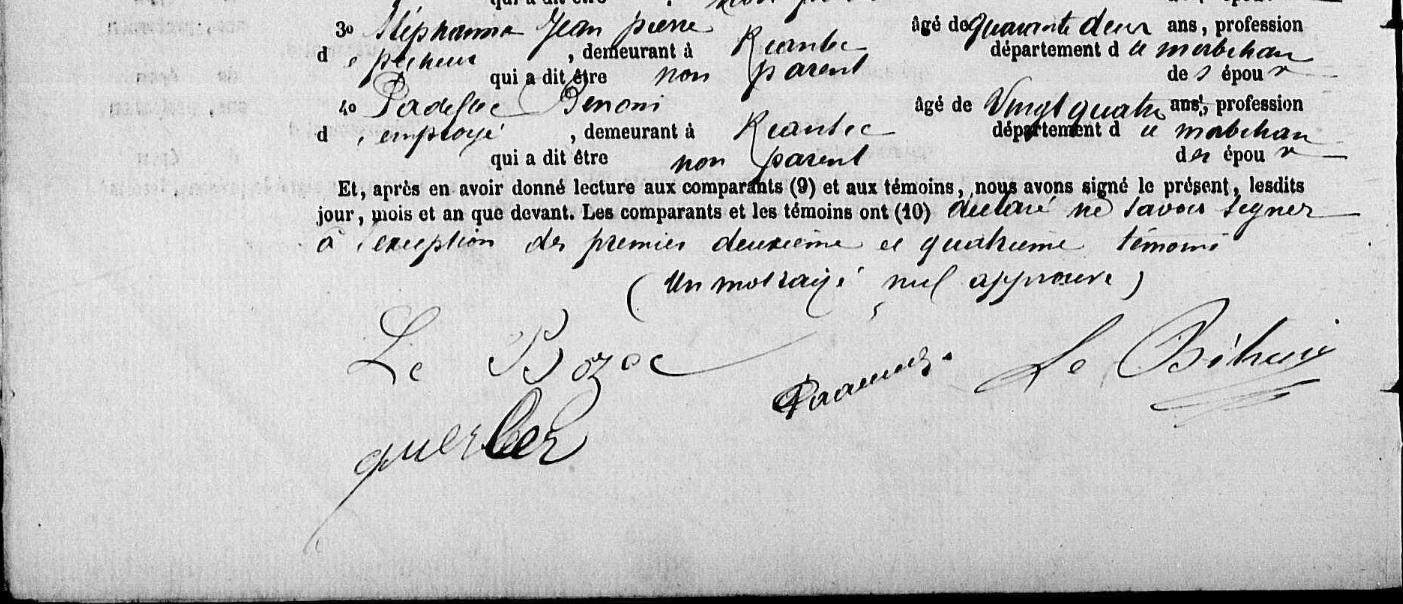 qui a dit être
3o Stéphanna Jean pierre âgé de quarante deux ans, profession
d e pecheur , demeurant à Riantec département d u morbihan
qui a dit être non parent de s épou x
4o Padellec Benoni âgé de Vingt quatre ans, profession
d 'employé , demeurant à Riantec département d u morbihan
qui a dit être non parent des épou x
Et, après en avoir donné lecture aux comparants (9) et aux témoins, nous avons signé le présent, lesdits
jour, mois et an que devant. Les comparants et les témoins ont (10) déclaré ne savoir signer
à l'exception des premier deuxième et quatrième témoins
(Un mot rayé nul approuvé)
Le Bozec Le Bihuic
querler